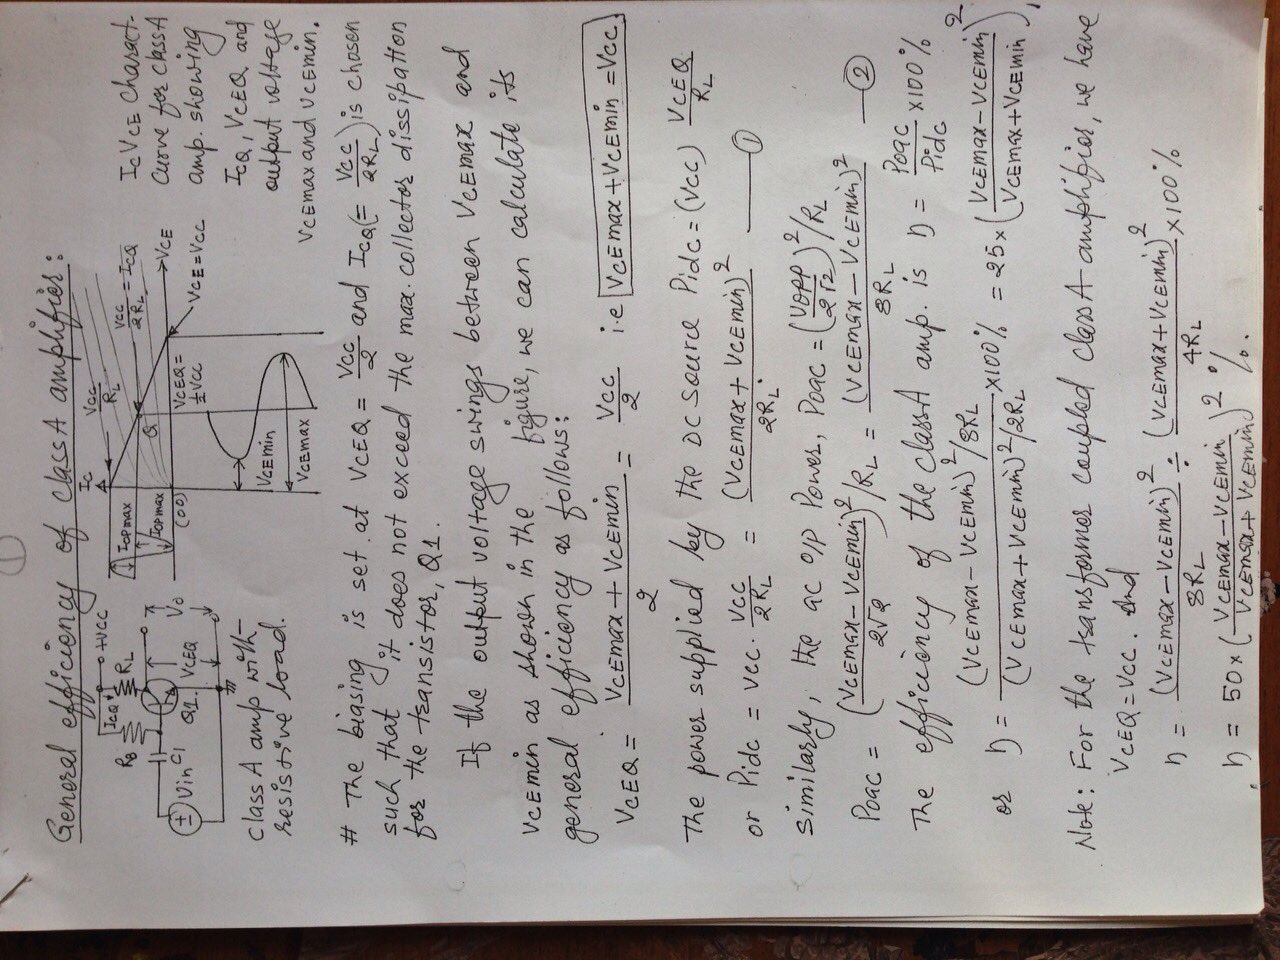 1
General efficiency of class A amplifier:
+VCC
ICQ
RB
RL
Vin
C1
Q1
VCEQ
Vo
class A amp with-
resistive load.
IC
VCC/RL
IOPmax
IOPmax
(00)
Q
VCC/2RL = ICQ
VCE
VCEQ =
½VCC
VCE=VCC
VCEmin
VCEmax
IC VCE charact-
curve for class A
amp. showing
ICQ, VCEQ and
output voltage
VCEmax and VCEmin.
# The biasing is set at VCEQ = VCC/2 and ICQ(= VCC/2RL) is chosen
such that it does not exceed the max. collector dissipation
for the transistor, Q1.
If the output voltage swings between VCEmax and
VCEmin as shown in the figure, we can calculate its
general efficiency as follows:
VCEQ = (VCEmax + VCEmin)/2 = VCC/2 i.e VCEmax + VCEmin = VCC.
The power supplied by the DC source Pidc = (VCC) VCEQ/RL
or Pidc = VCC. VCC/2RL = (VCEmax + VCEmin)²/2RL. —— 1
Similarly, the ac o/p Power, Poac = (Vopp/2√2)²/RL
Poac = ((VCEmax - VCEmin)/2√2)²/RL = (VCEmax - VCEmin)²/8RL —— 2
The efficiency of the class A amp. is η = Poac/Pidc ×100%
or η = ((VCEmax - VCEmin)²/8RL)/((VCEmax + VCEmin)²/2RL) ×100% = 25×((VCEmax - VCEmin)/(VCEmax + VCEmin))²,
Note: For the transformer coupled class A amplifier, we have
VCEQ = VCC. and
η = (VCEmax - VCEmin)²/8RL ÷ (VCEmax + VCEmin)²/4RL ×100%
η = 50×((VCEmax - VCEmin)/(VCEmax + VCEmin))² %.